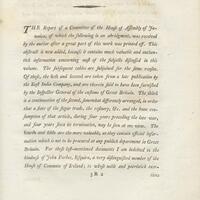 THE Report of a Committee of the House of Assembly of Ja-
maica, of which the following is an abridgment, was received
by the author after a great part of this work was printed off. This
abstract is now added, because it contains much valuable and authen-
tick information concerning most of the subjects discussed in this
volume. The subsequent tables are subjoined for the same reason.
Of these, the first and second are taken from a late publication by
the East India Company, and are therein said to have been furnished
by the Inspector General of the customs of Great Britain. The third
is a continuation of the second, somewhat differently arranged, in order
that a state of the sugar trade, the refinery, &c. and the home con-
sumption of that article, during four years preceding the late war,
and four years since its termination, may be seen at one view. The
fourth and fifth are the more valuable, as they contain official infor-
mation which is not to be procured at any publick department in Great
Britain. For these last-mentioned documents I am indebted to the
kindness of John Forbes, Esquire, a very distinguished member of the
House of Commons of Ireland; to whose noble and patriotick exer-
3 R 2
tions